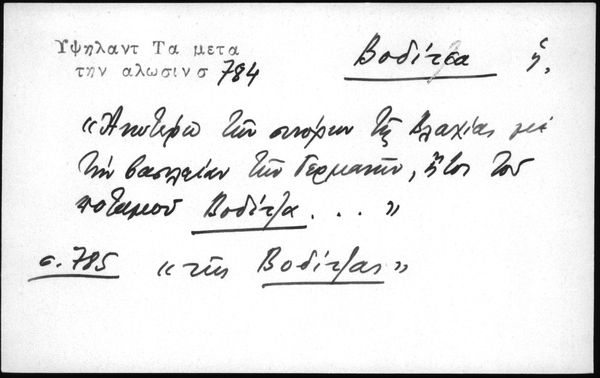 Υψηλαντ Τα μετα Βοδίτζα ἡ,
την αλωσιν σ 784
«Ἀνωτέρω τῶν συνόρων τῆς Βλαχίας μὲ
τὴν βασιλείαν τῶν Γερμανῶν, ἤτοι τοῦ
ποταμοῦ Βοδίτζα . . . »
σ. 785 «τῆς Βοδίτζας»